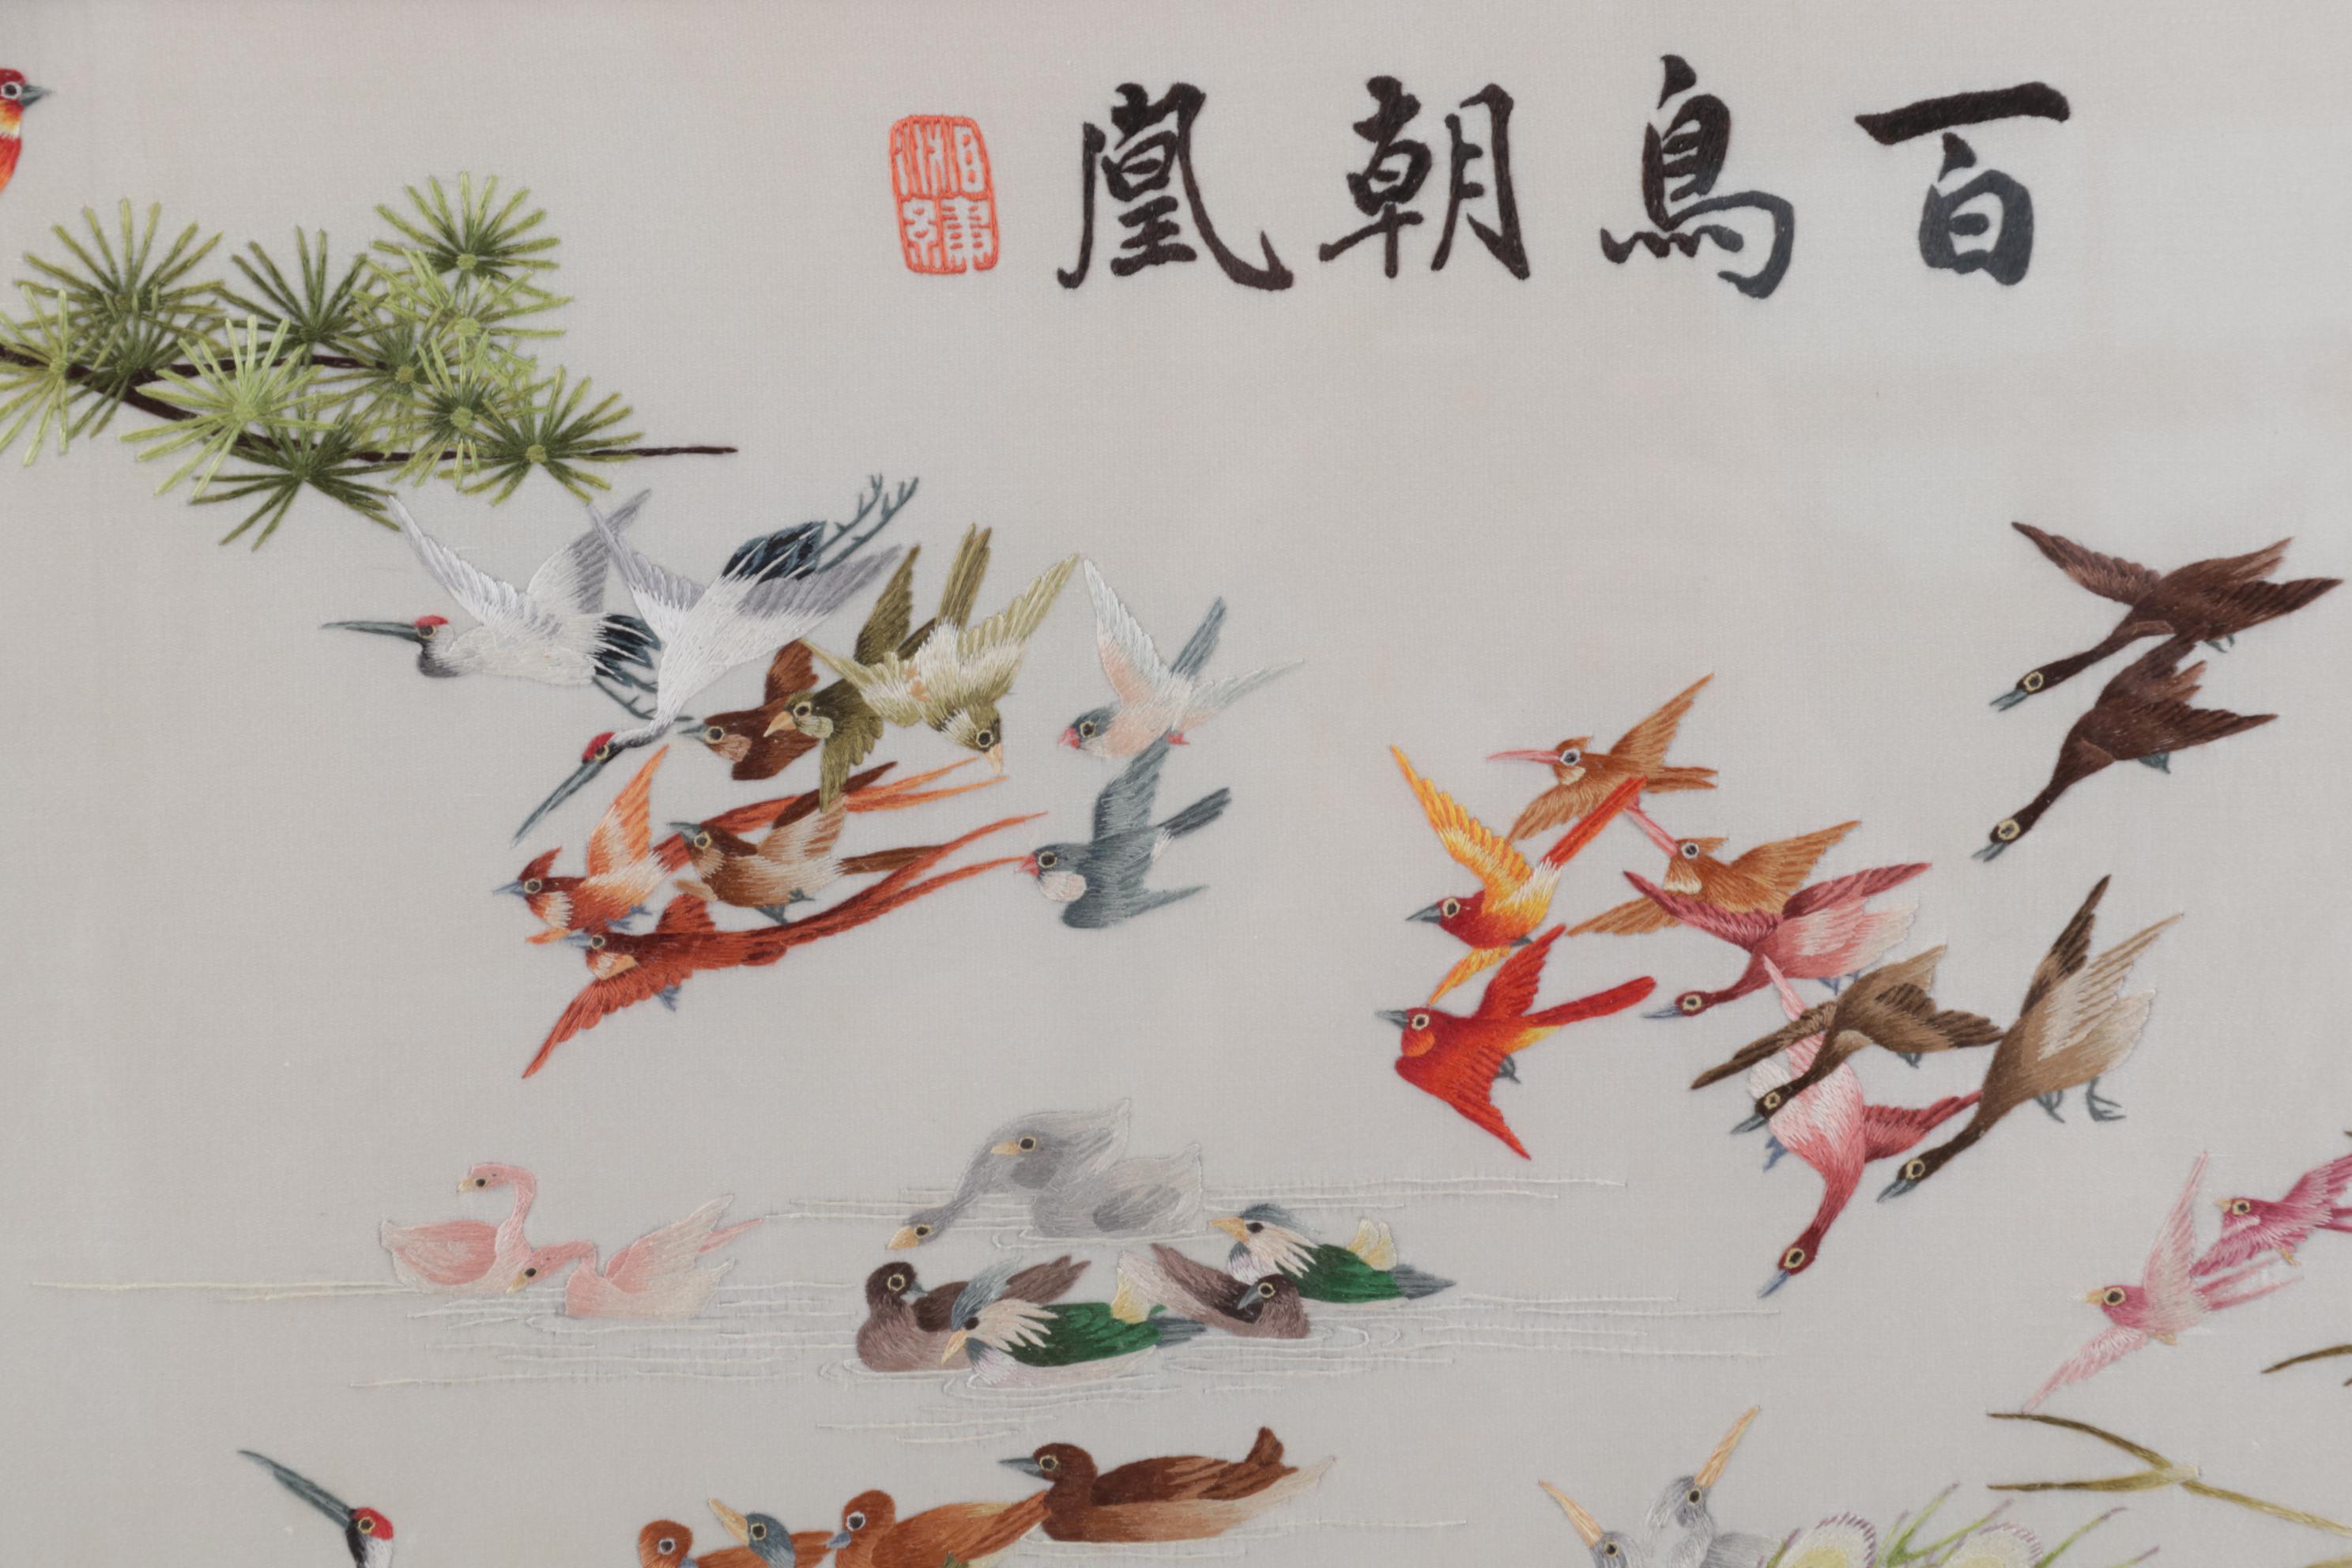 百鳥朝凰
湘繡